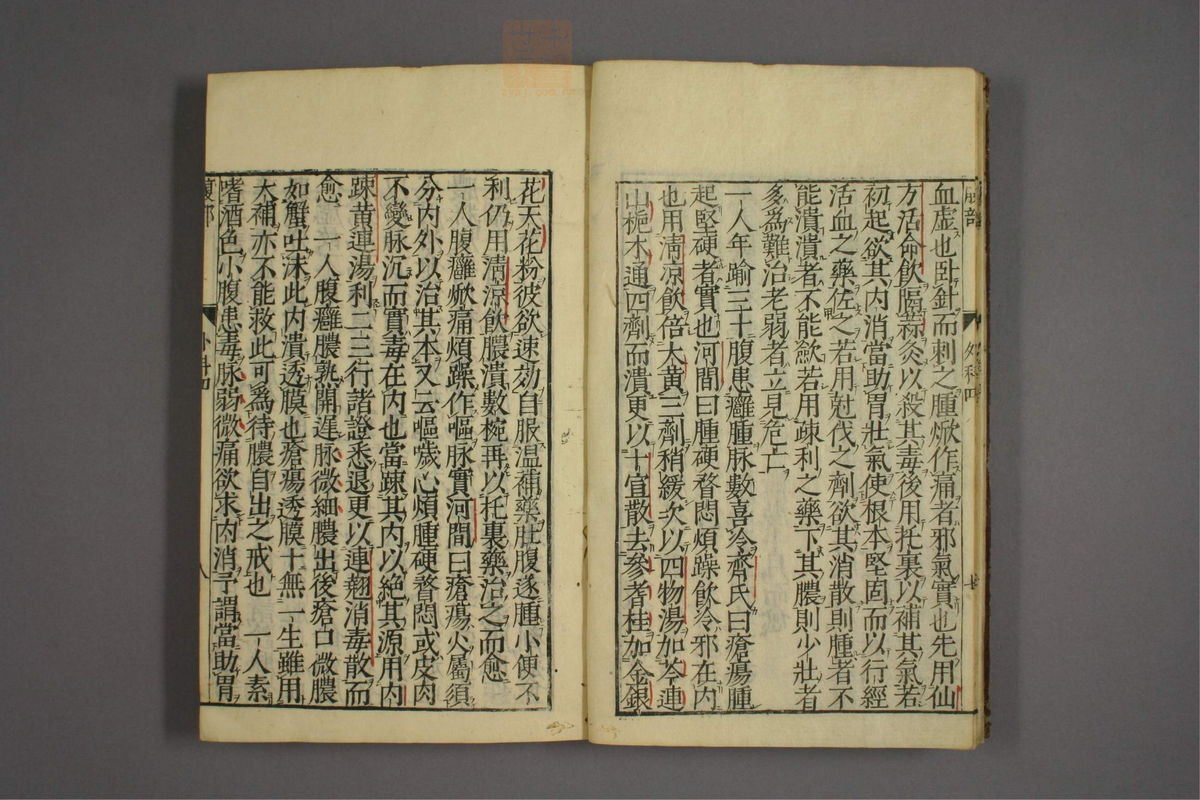 血虚也卧針而刺之腫焮作痛者邪氣實也先用仙
方活命飲隔蒜灸以殺其毒後用托裏以補其氣若
初起欲其内消當助胃壯氣使根本堅固而以行經
活血之藥佐之若用尅伐之劑欲其消散則腫者不
能潰潰者不能歛若用疎利之藥下其膿則少壯者
多為難治老弱者立見危亡
一人年踰三十腹患癰腫脉數喜冷齊氏曰瘡瘍腫
起堅硬者實也河間曰腫硬瞀悶煩躁飲冷邪在内
也用清凉飲倍大黄三劑稍緩次以四物湯加芩連
山梔木通四劑而潰更以十宣散去參耆桂加金銀
花天花粉彼欲速効自服温補藥肚腹遂腫小便不
利仍用清凉飲膿潰數椀再以托裏藥治之而愈
一人腹癰焮痛煩躁作嘔脉實河間曰瘡瘍火屬須
分内外以治其本又云嘔噦心煩腫硬瞀悶或皮肉
不變脉沉而實毒在内也當踈其内以絶其源用内
踈黄連湯利二三行諸證悉退更以連翹消毒散而
愈 一人腹癰膿熟開遲脉微細膿出後瘡口微膿
如蟹吐沫此内潰透膜也瘡瘍透膜十無一生雖用
大補亦不能救此可為待膿自出之戒也 一人素
嗜酒色小腹患毒脉弱微痛欲求内消予謂當助胃
外科四
八